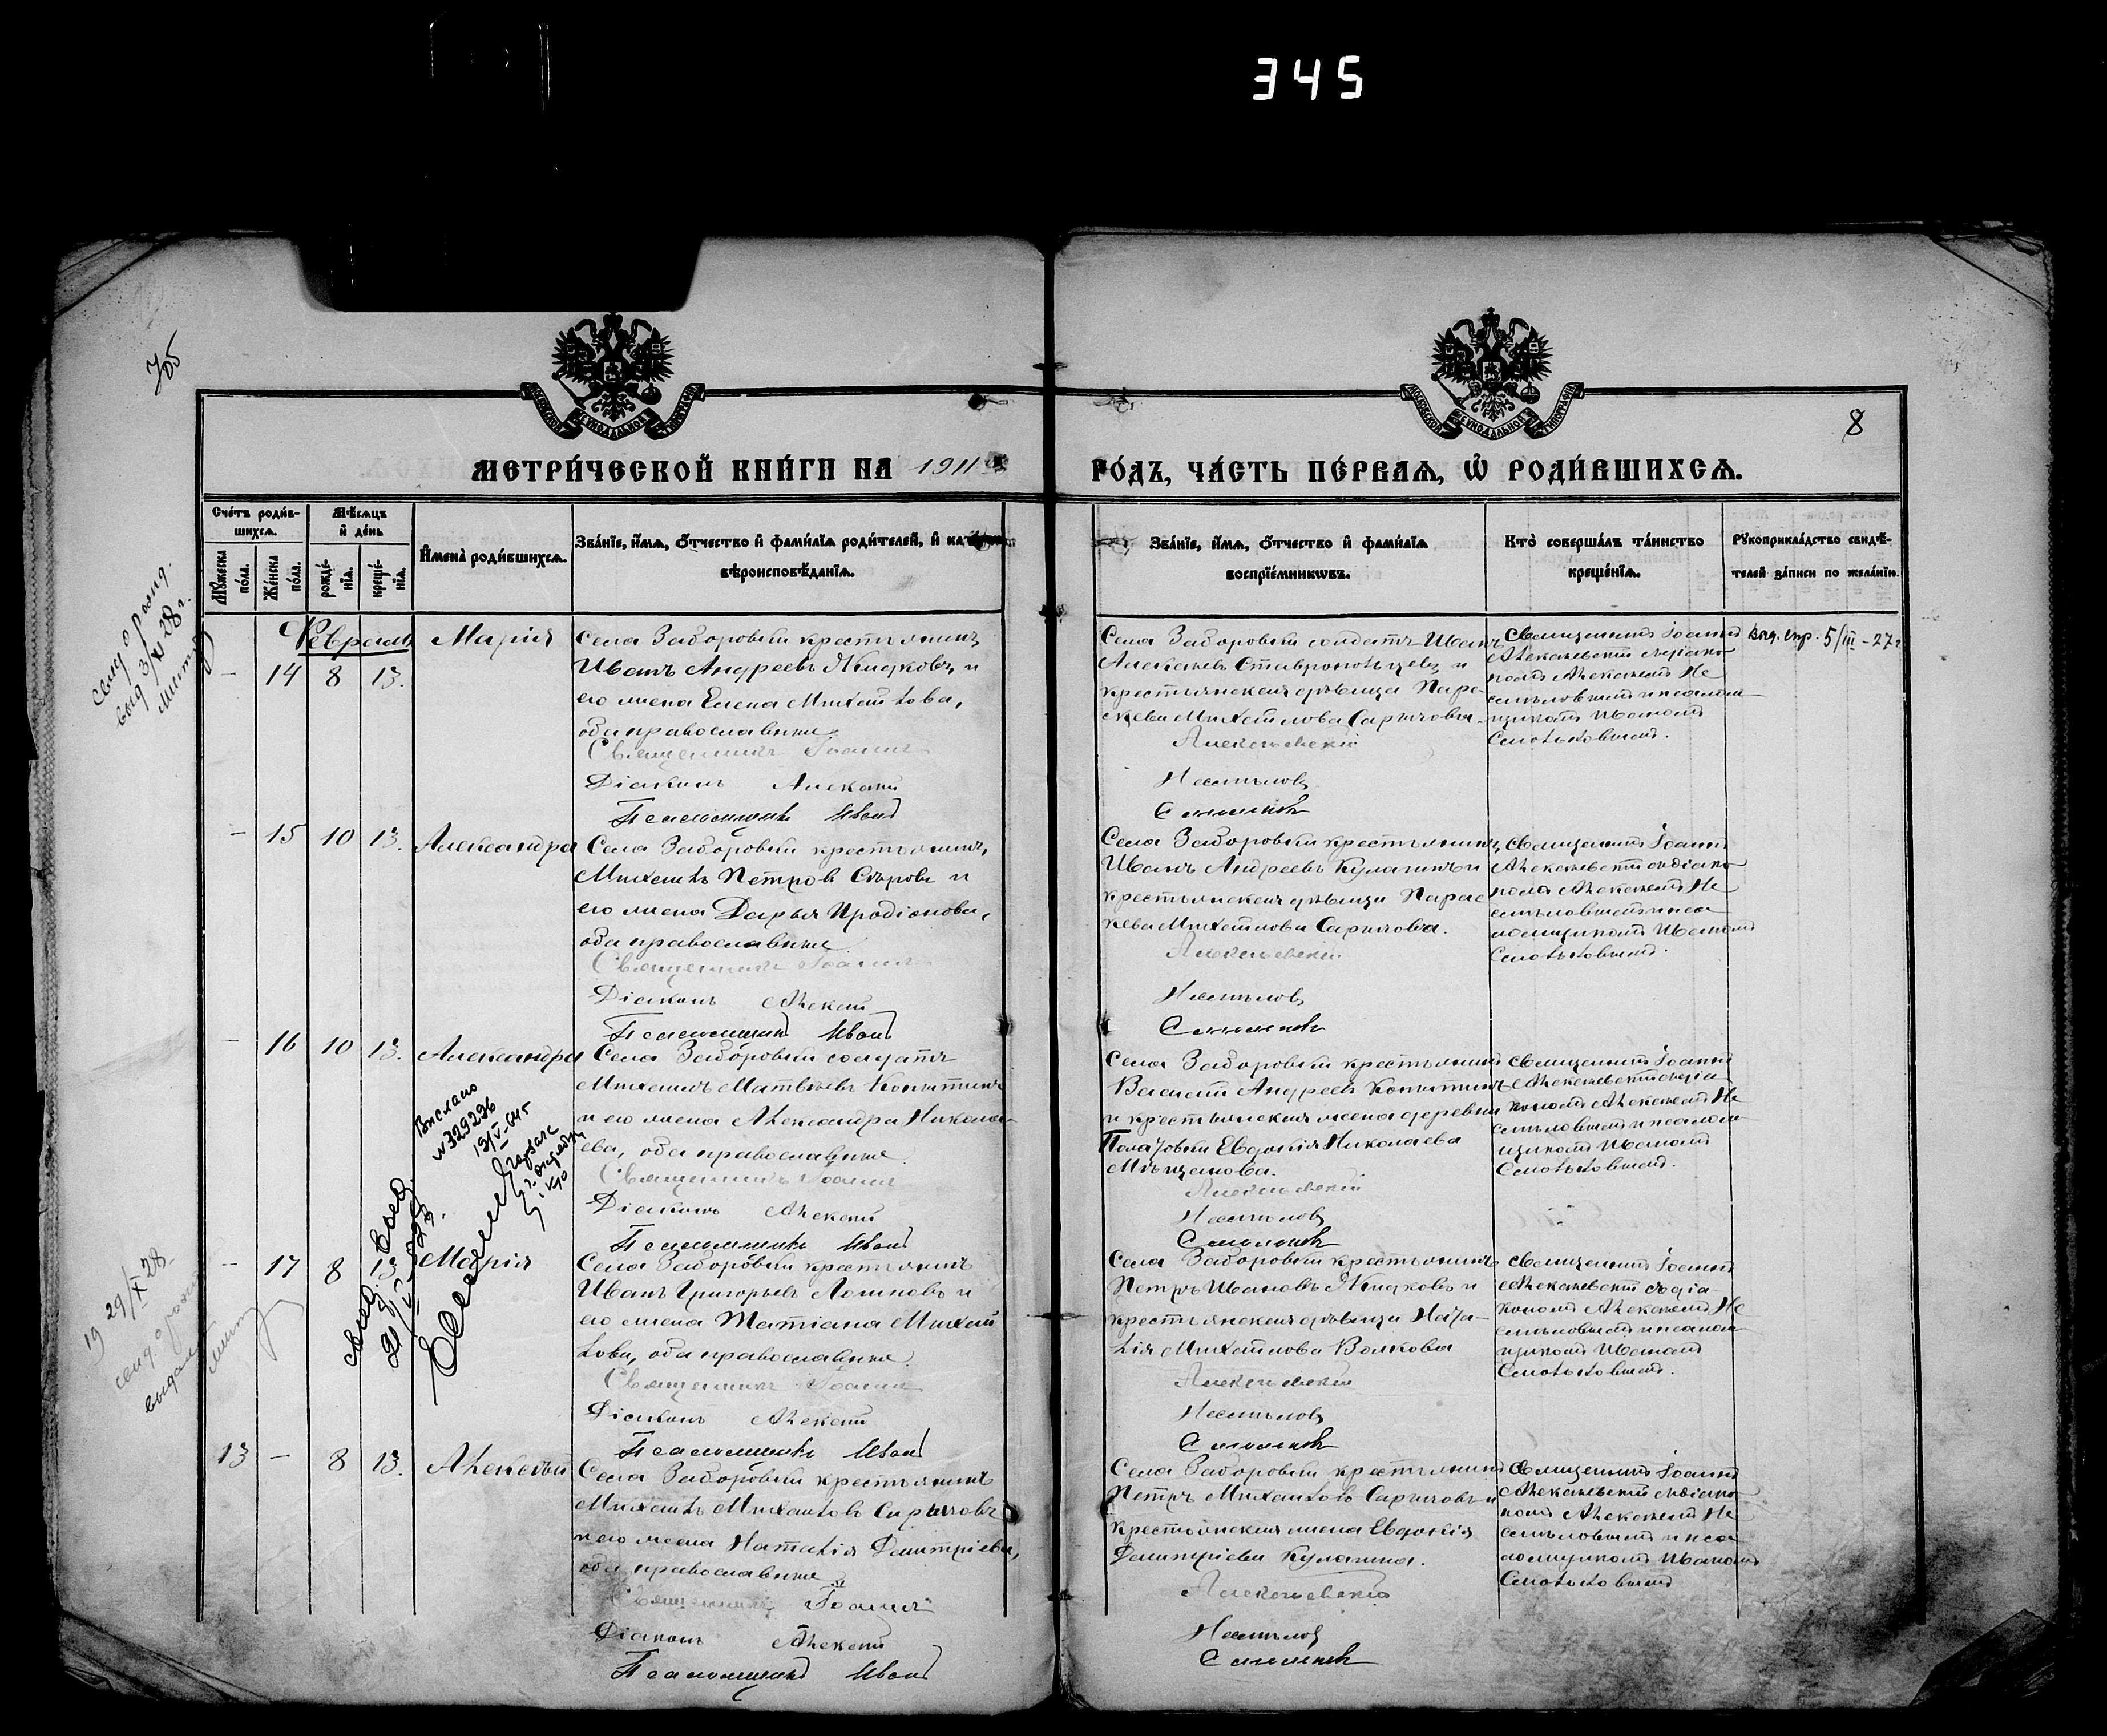 345
705
8
МОСКОВСКОЙ СѴНОДАЛЬНОЙ ТИПОГРАФІИ
МОСКОВСКОЙ СѴНОДАЛЬНОЙ ТИПОГРАФІИ
МЕТРИ́ЧЕСКОЙ КНИ́ГИ НА 1911 й
ГО́ДЪ, ЧА́СТЬ ПЕ́РВАѦ, Ѡ҆ РОДИ́ВШИХСѦ.
Сче́тъ роди́в-
шихсѧ.
Мꙋ́жеска
по́ла.
Же́нска
по́ла.
Мѣ́сѧцъ
и҆ де́нь
рожде́-
нїѧ.
креще́-
нїѧ.
И҆мена̀ роди́вшихсѧ.
Зва́нїе, и҆́мѧ, ѻ҆́тчество и҆ фамі́лїѧ роди́телей, и҆
вѣроисповѣ́данїѧ.
Зва́нїе, и҆́мѧ, ѻ҆́тчество и҆ фамі́лїѧ
воспрїе́мникѡвъ.
Кто̀ соверша́лъ та́инство
креще́нїѧ.
Рꙋкоприкла́дство свидѣ́-
телей за́писи по жела́нїю.
Февраль
- 14 8 13. Марія
Села Заборовки крестьянинъ
Иванъ Андреевъ Жидковъ и
его жена Елена Михайлова,
оба православные.
Священникъ Іоаннъ
Діаконъ Алексий
Псаломщикъ Иванъ
Села Заборовки солдатъ Иванъ
Алексѣевъ Ставропольцевъ и
крестьянская дѣвица Пара-
скева Михайлова Сарычова.
Алексѣевскій
Несмѣловъ
Смольковъ
Священникъ Іоаннъ
Алексѣевскій съ діако-
номъ Алексѣемъ Не
смѣловымъ и псалом-
щикомъ Иваномъ
Смольковымъ.
Выд. спр. 5/III-27 г
- 15 10 13. Александра
Села Заборовки крестьянинъ
Михаилъ Петровъ Сѣровъ и
его жена Дарья Иродіонова,
оба православные.
Священникъ Іоаннъ
Діаконъ Алексий
Псаломщикъ Иванъ
Села Заборовки крестьянинъ
Иванъ Андреевъ Кулагинъ и
крестьянская дѣвица Парас
кева Михайлова Сарычова.
Алексѣевскій
Несмѣловъ
Смольковъ
Священникъ Іоаннъ
Алексѣевскій съ діако-
номъ Алексѣемъ Не
смѣловымъ и пса
ломщикомъ Иваномъ
Смольковымъ.
- 16 10 13. Александра
Села Заборовки солдатъ
Михаилъ Матвѣевъ Копытинъ
и его жена Александра Никола-
ева, оба православные.
Священникъ Іоаннъ
Діаконъ Алексий
Псаломщикъ Иванъ
Села Заборовки крестьянинъ
Василій Андреевъ Копытинъ
и крестьянская жена деревни
Евдокія Николаева
Мѣщанова.
Алексѣевскій
Несмѣловъ
Смольковъ
Священникъ Іоаннъ
Алексѣевскій съ діа-
кономъ Алексѣемъ Не
смѣловымъ и псалом-
щикомъ Иваномъ
Смольковымъ.
- 17 8 13 Марія
Села Заборовки крестьянинъ
Иванъ Григорьевъ Логиновъ и
его жена Татіана Михай
лова, оба православные.
Священникъ Іоаннъ
Діаконъ Алексий
Псаломщикъ Иванъ
Села Заборовки крестьянинъ
Петръ Ивановъ Жидковъ и
крестьянская дѣвица Ната-
лія Михайлова Волкова
Алексѣевскій
Несмѣловъ
Смольковъ
Священникъ Іоаннъ
Алексѣевскій съ діа-
кономъ Алексѣемъ Не
смѣловымъ и псалом-
щикомъ Иваномъ
Смольковымъ.
13 - 8 13. Алексѣй
Села Заборовки крестьянинъ
Михаилъ Михаиловъ Сарычовъ
и его жена Наталія Димитріева,
оба православные.
Священникъ Іоаннъ
Діаконъ Алексий
Псаломщикъ Иванъ
Села Заборовки крестьянинъ
Петръ Михаиловъ Сарычовъ и
крестьянская жена Евдокія
Димитріева Кулагина.
Алексѣевскій
Несмѣловъ
Смольковъ
Священникъ Іоаннъ
Алексѣевскій съ діако-
номъ Алексѣемъ Не
смѣловымъ и пса
ломщикомъ Иваномъ
Смольковымъ
выд 3/XI 28 г.
Выслано
N 329296
19 29/X 28.
выдан